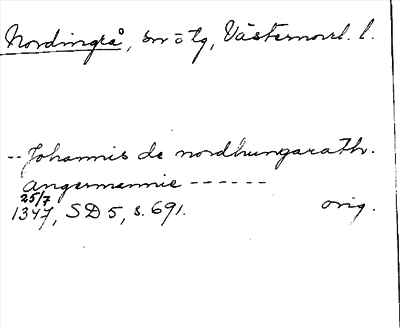 Nordingrå, sn o tg, Västernorrl. l.
-- Johannis de nordhungarath.
angermannie ------
25/7
1347, SD 5, s. 691. orig.